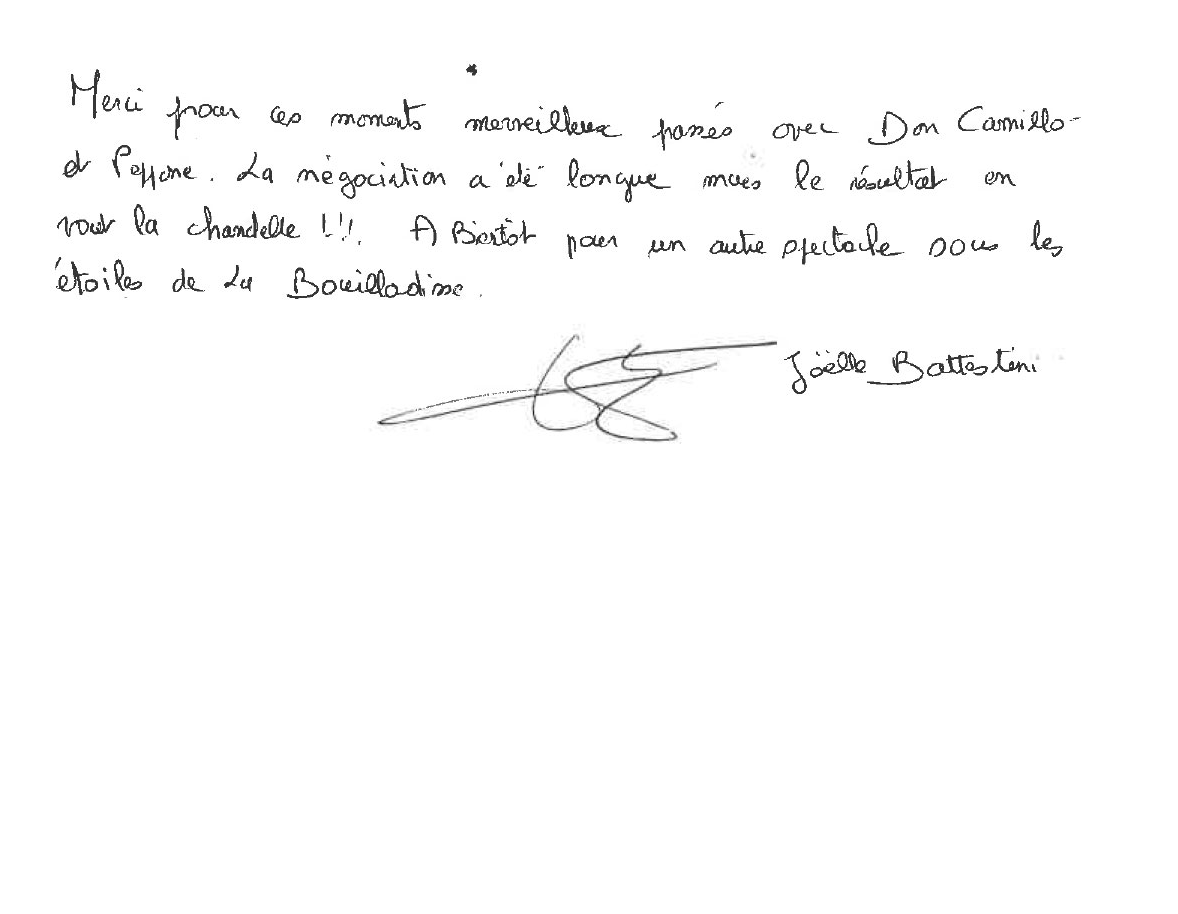 Merci pour ces moments merveilleux passés avec Don Camillo
et Peppone. La négociation a été longue mais le résultat en
vaut la chandelle !!!. A Bientôt pour un autre spectacle sous les
étoiles de La Bouilladisse.
Joëlle Battestini